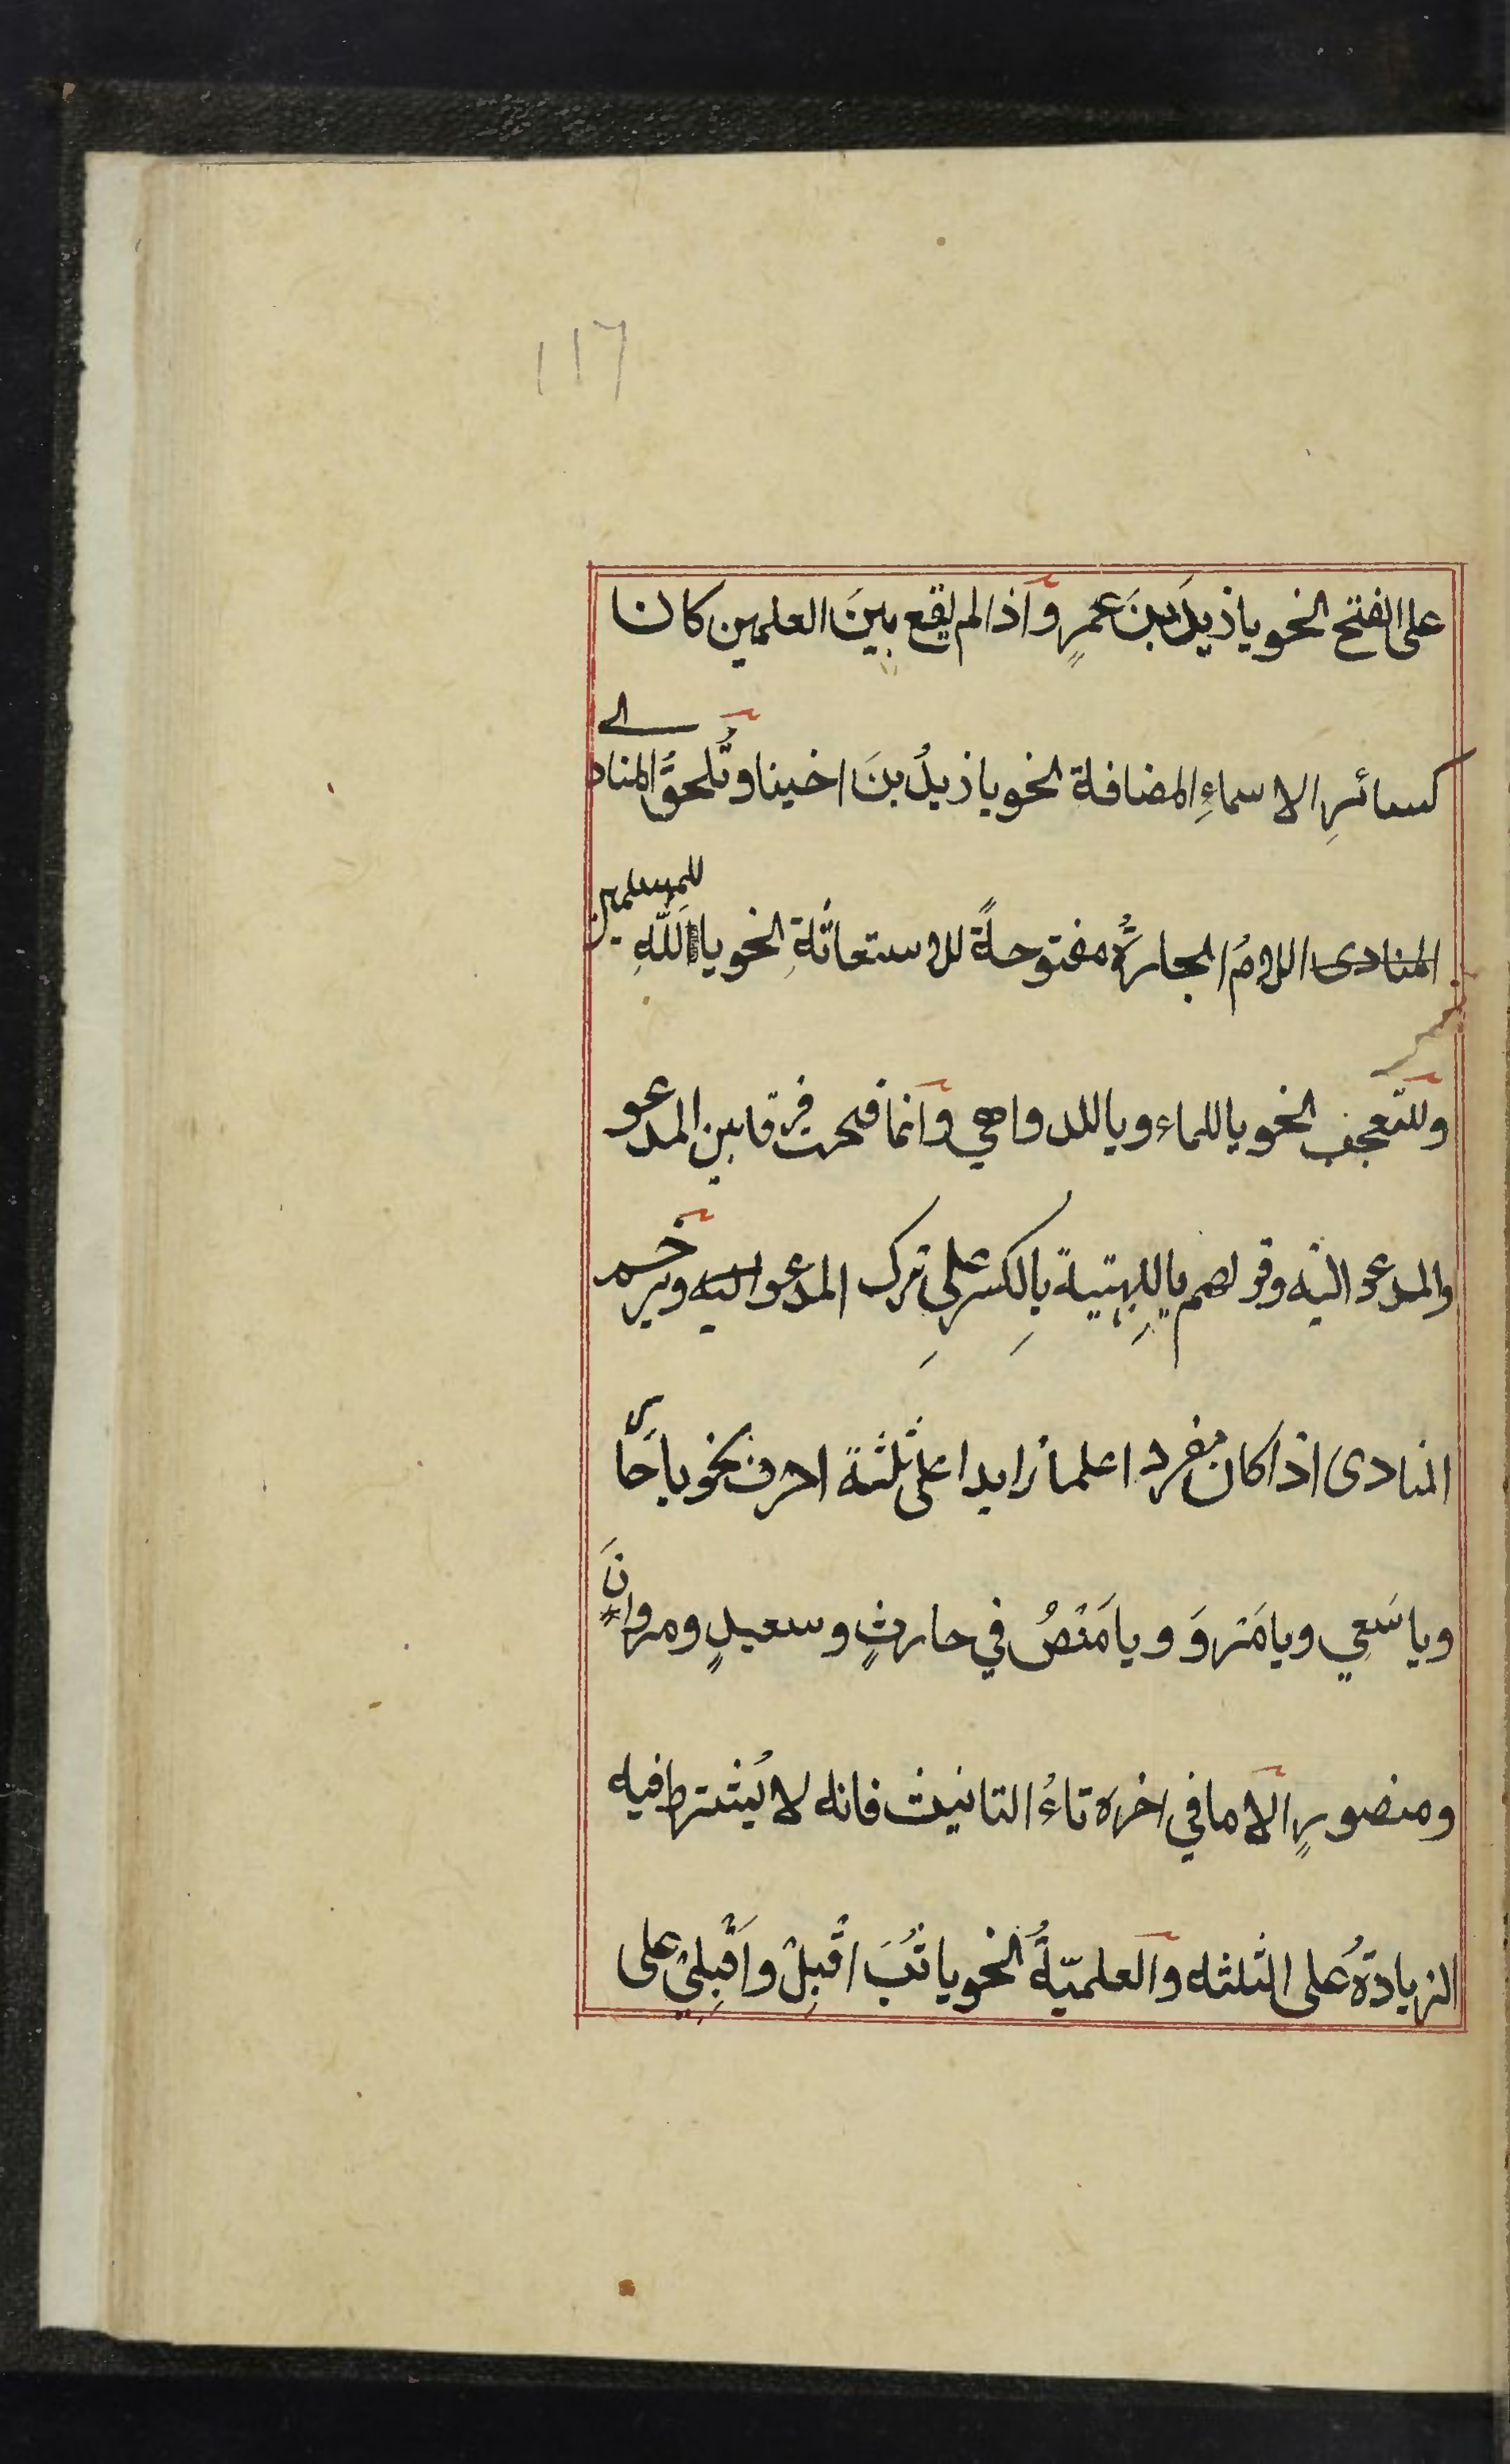 ١١٦
على الفتح نحو يا زيدَ بنَ عمرٍو واذا لم يقع بينَ العلمين كان
كسائرِ الاسماءِ المضافة نحو يا زيدُ بنَ اخينا وتُلحقُ المنادى
المنادى اللامُ الجارّةُ مفتوحةً للاستغاثةِ نحو يا لَلّٰهِ للمسلمين
وللتعجب نحو يا للماء ويا للدواهي وانما فتحت فرقا بين المدعو
والمدعو اليه وقولهم يا لِلبهيتةِ بِالكسرِ على ترك المدعو اليه ويرخم
المنادى اذا كان مفردا علما زايدا على ثلثة احرف نحو يا حَارُ
ويا سَعِي ويا مَرْوَ ويا مَنْصُ في حارثٍ وسعيدٍ ومروانَ
ومنصورٍ الا ما في اخره تاءُ التانيث فانه لا يُشترط فيه
الزيادةُ على الثلثه والعلميّةُ نحو يا ثُبَ اقْبِلْ واَقْبِلِيْ على